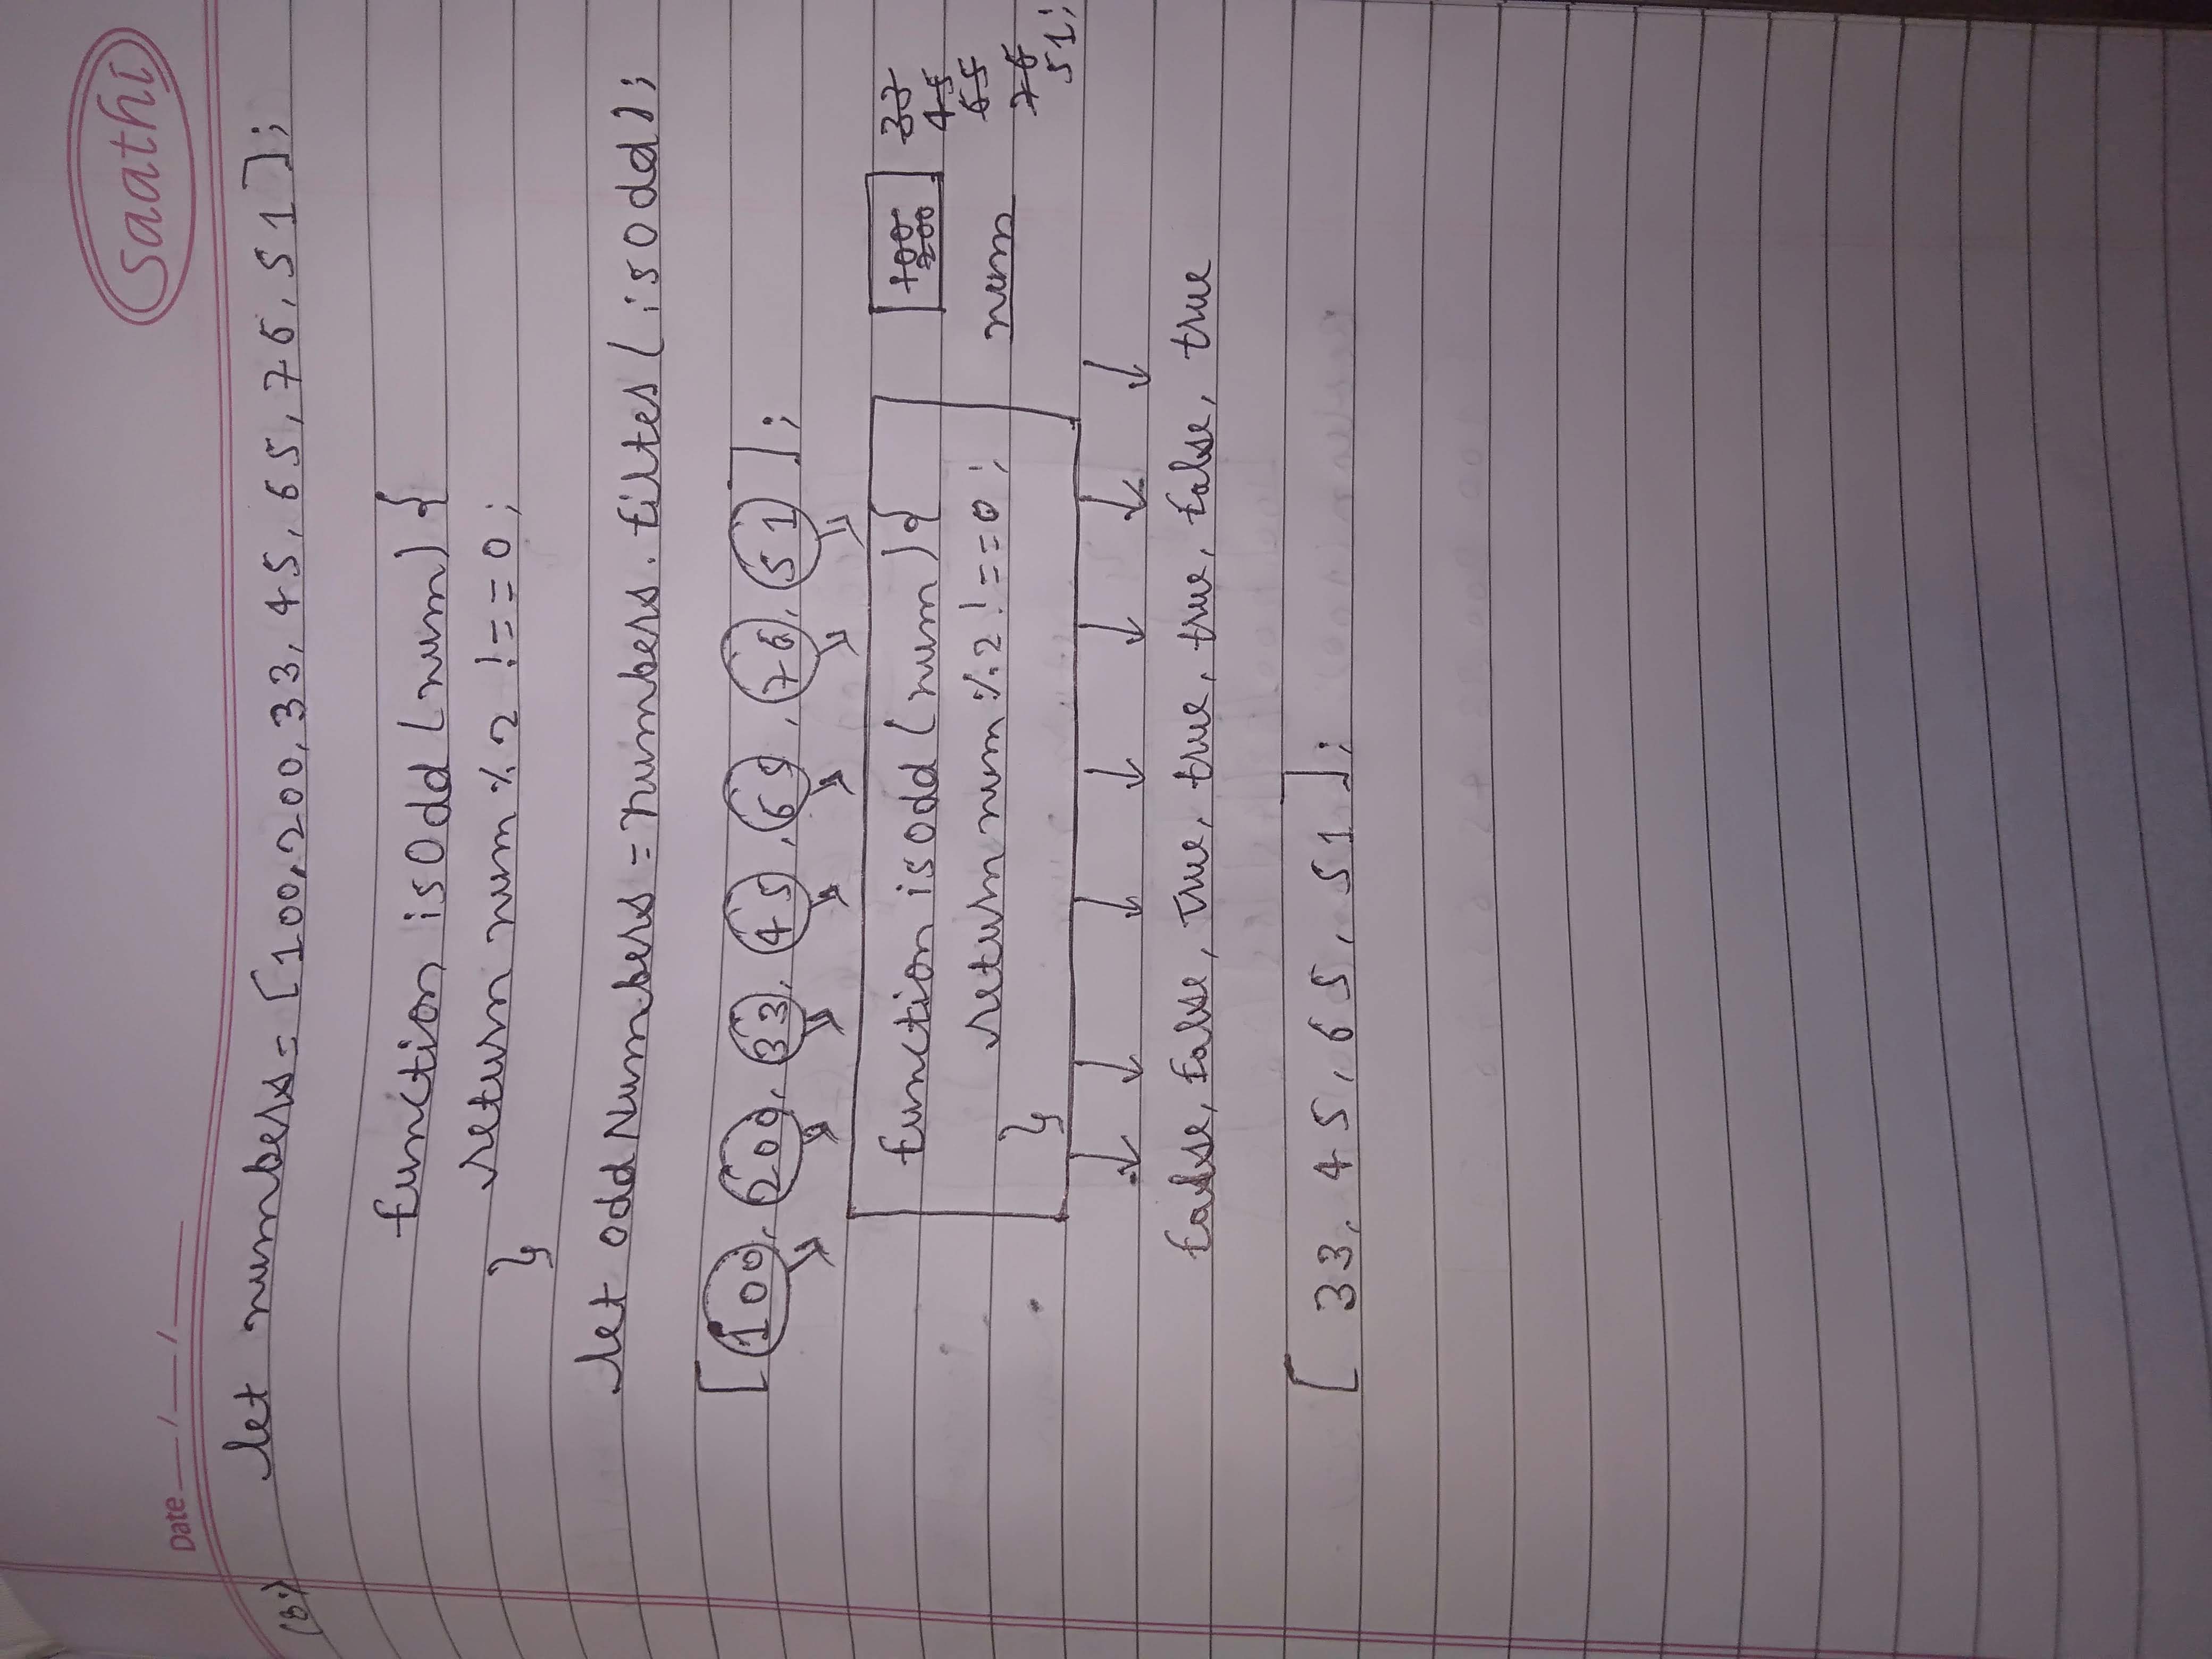 Saathi
Date ___/___/___
(8.) let numbers = [100, 200, 33, 45, 65, 76, 51];
function isOdd (num) {
return num % 2 !== 0;
}
let oddNumbers = numbers.filter(isOdd);
[100, 200, 33, 45, 65, 76, 51];
100 200 33 45 65 76 51;
num
function isOdd (num) {
return num % 2 !== 0;
}
false, false, True, true, true, false, true
[ 33, 45, 65, 51];